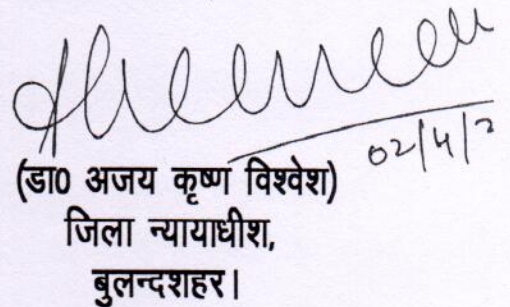 02/4/2
(डा0 अजय कृष्ण विश्वेश)
जिला न्यायाधीश,
बुलन्दशहर।